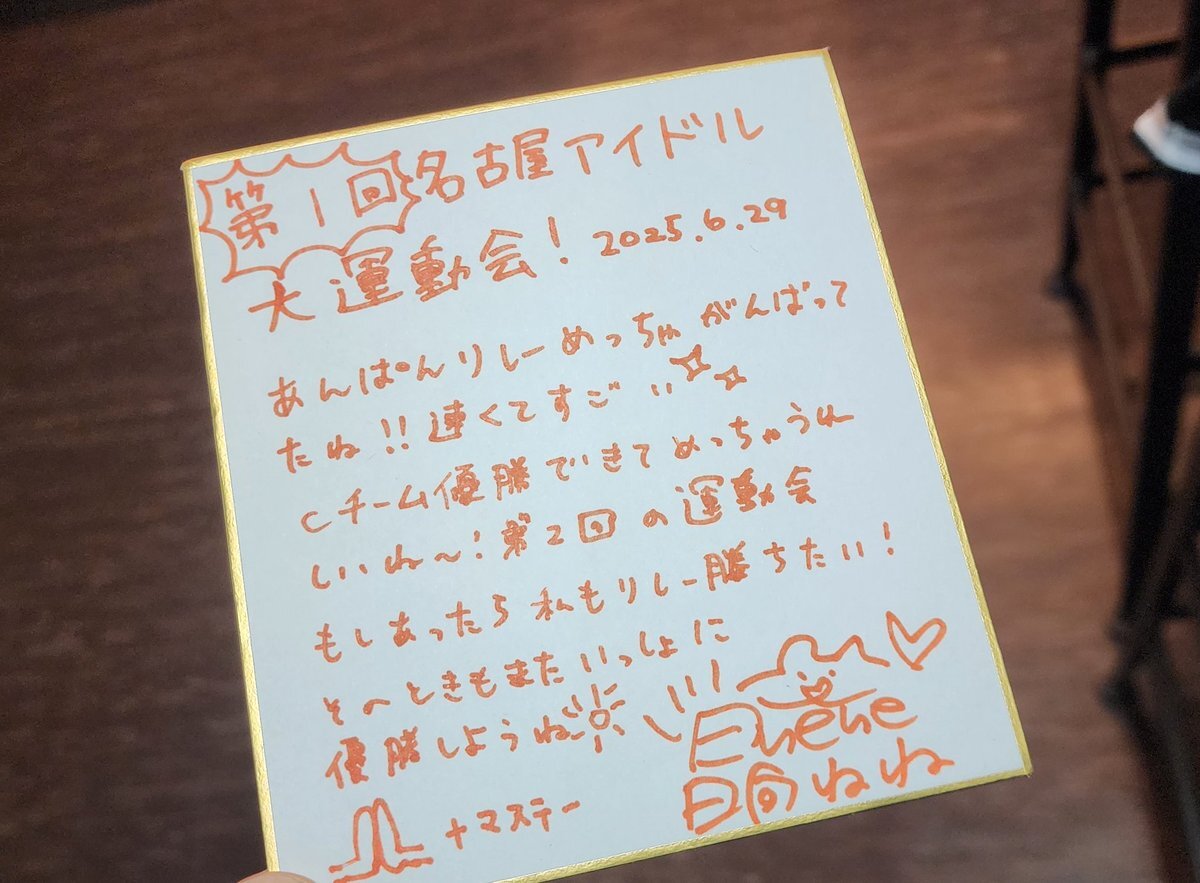 第1回名古屋アイドル
大運動会! 2025.6.29
あんぱんリレーめっちゃがんばって
たね!!速くてすごい
Cチーム優勝できてめっちゃうれ
しいね〜!第2回の運動会
もしあったら私もリレー勝ちたい!
そんときもまたいっしょに
優勝しようね
ナマステー
日nene
日向ねね